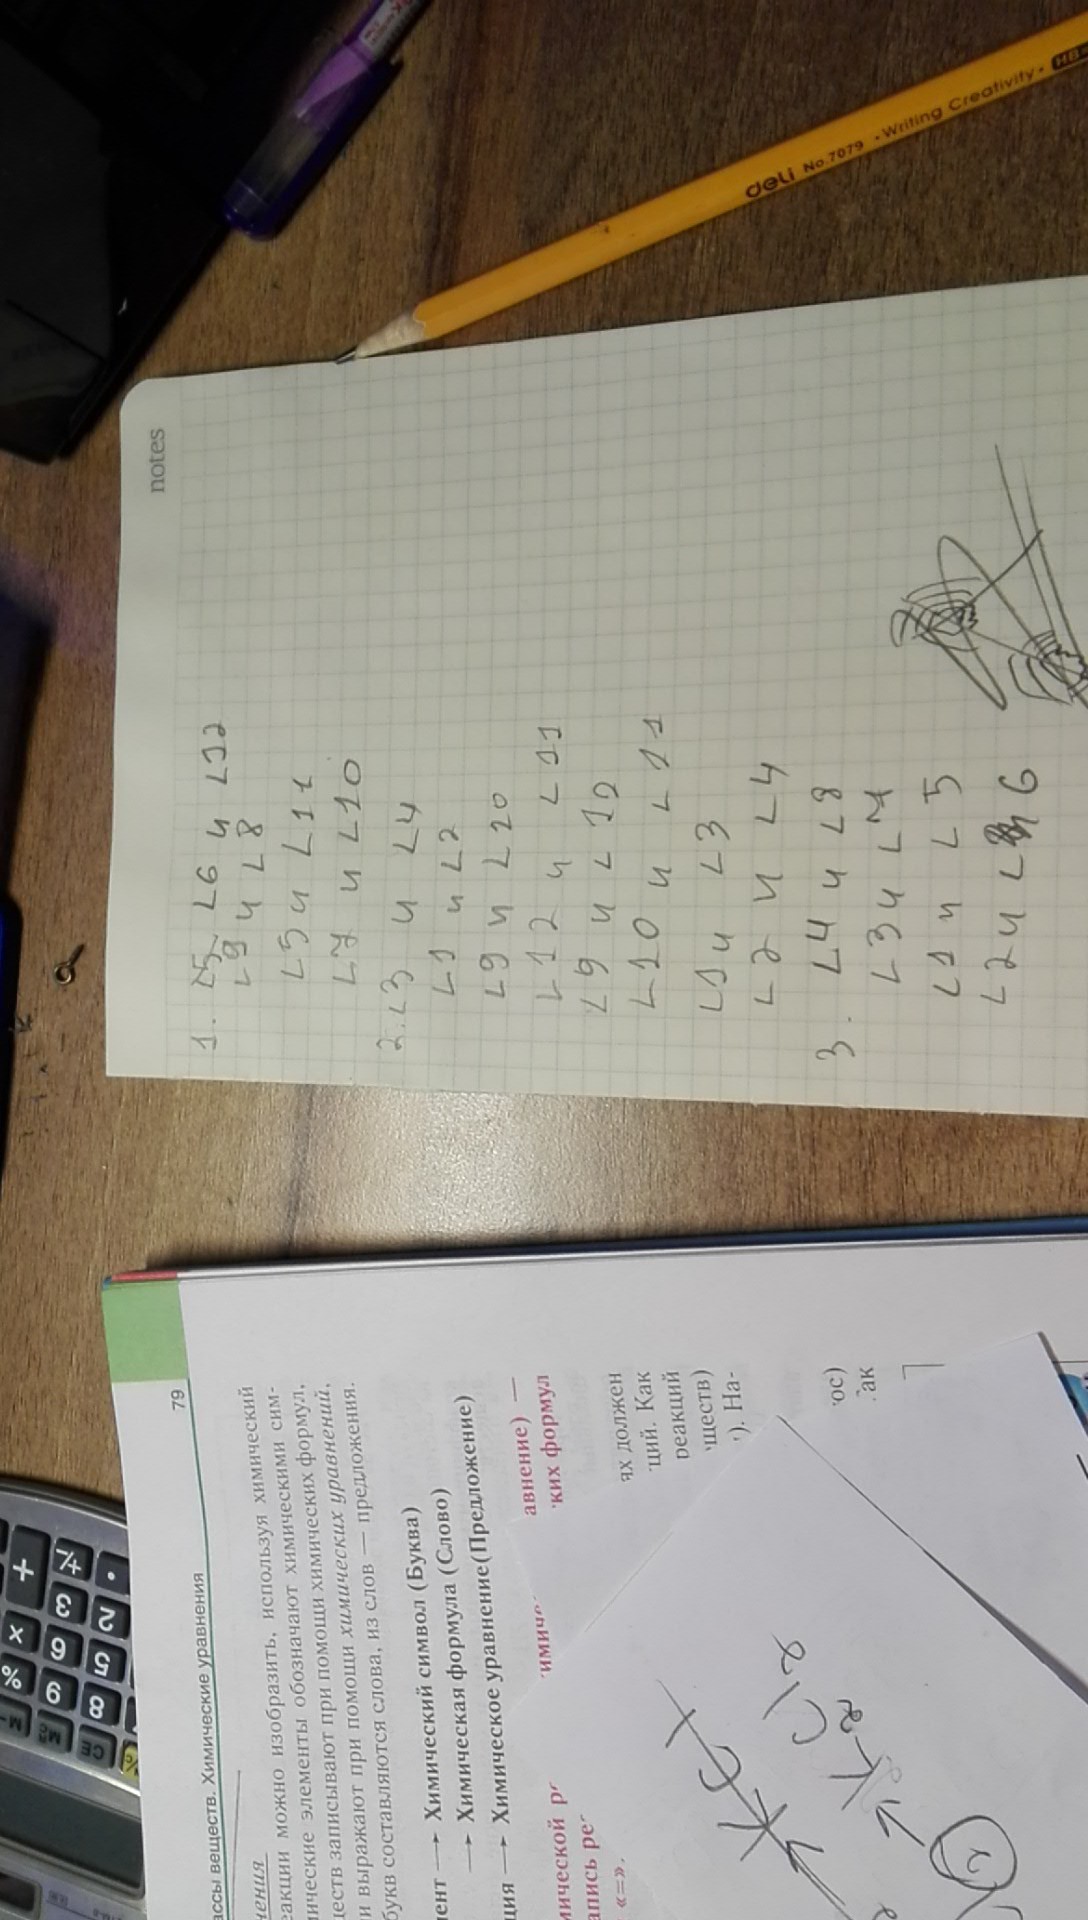 notes
1. ∠5 ∠6 и ∠12
∠9 и ∠8
∠5 и ∠11
∠7 и ∠10
2. ∠3 и ∠4
∠1 и ∠2
∠9 и ∠20
∠12 и ∠11
∠9 и ∠12
∠10 и ∠11
∠1 и ∠3
∠2 и ∠4
3. ∠4 и ∠8
∠3 и ∠7
∠1 и ∠5
∠2 и ∠6
deli No.7079 • Writing Creativity • HB
ассы веществ. Химические уравнения 79
нения
еакции можно изобразить, используя химический
мические элементы обозначают химическими сим-
ществ записывают при помощи химических формул,
и выражают при помощи химических уравнений.
букв составляются слова, из слов — предложения.
ент → Химический символ (Буква)
→ Химическая формула (Слово)
ция → Химическое уравнение(Предложение)
авнение) —
имиче ких формул
мической р
апись ре
«=».
ях должен
ций. Как
реакций
ществ)
). На-
ос)
ак
+ +/- • × 3 2 % 6 5 9 8 CE